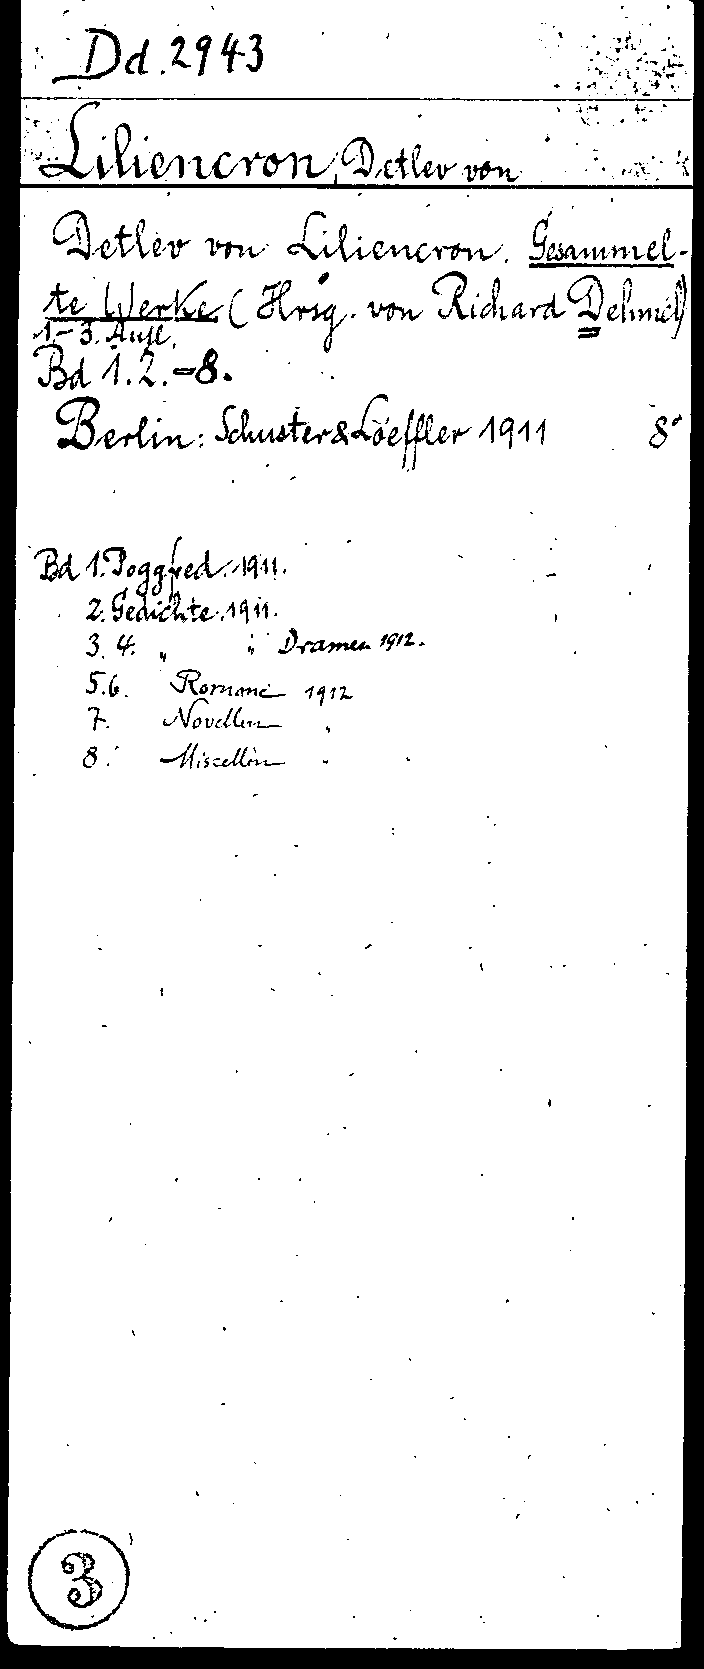 Dd. 2943
Liliencron, Detlev von
Detlev von Liliencron. Gesammel-
te Werke (Hrsg. von Richard Dehmel)
1-3. Aufl.
Bd 1. 2.-8.
Berlin: Schuster & Loeffler 1911 8°
Bd 1. Poggfred. 1911.
2. Gedichte. 1911.
3. 4. " " Dramen 1912.
5.6. Romane 1912
7. Novellen "
8. Miscellen "
3